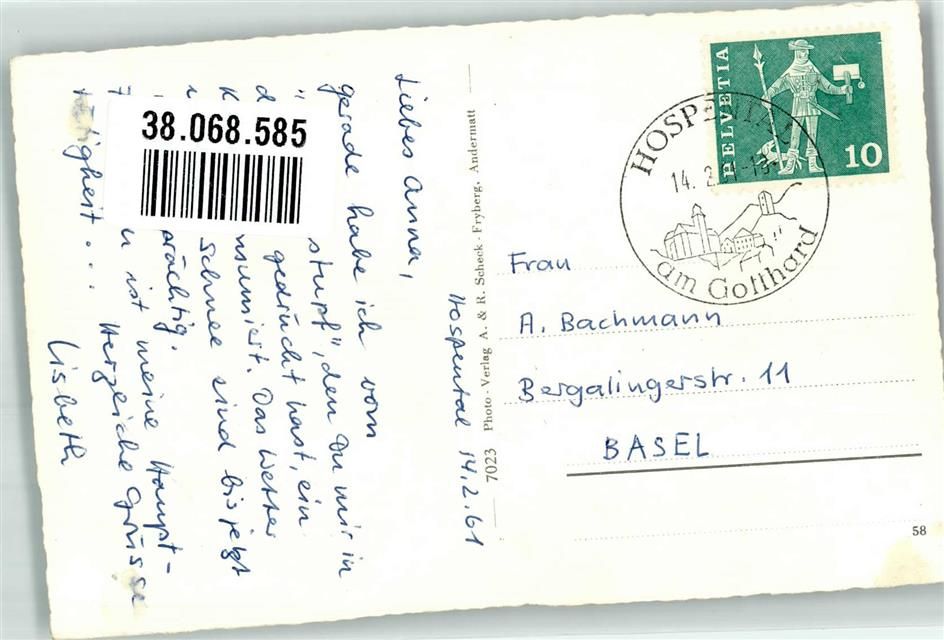 Liebes Anna,
gerade habe ich vom
stupf", den Du mir in
gedrückt hast, ein
nsumiert. Das Wetter
Schnee sind bis jetzt
prächtig.
u ist meine Haupt-
tätigkeit...
Herzliche Grüsse
Lisbeth
38.068.585
Hospental 14.2.61
7023 Photo-Verlag A. & R. Scheck-Fryberg, Andermatt
HELVETIA
10
HOSPENTAL
14. 2.
am Gotthard
Frau
A. Bachmann
Bergalingerstr. 11
BASEL
58